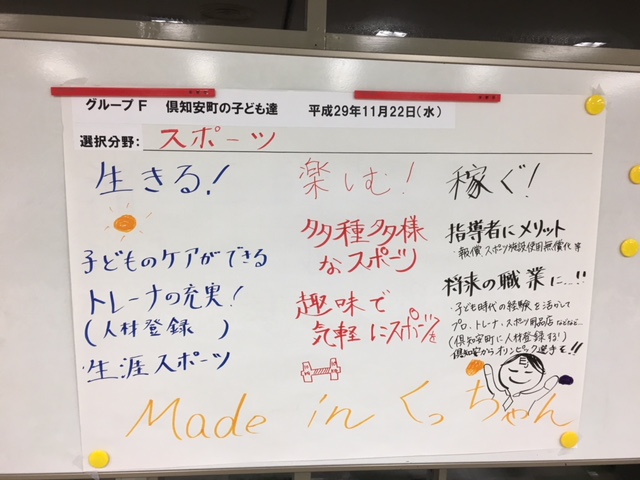 グループF 倶知安町の子ども達 平成29年11月22日(水)
選択分野: スポーツ
生きる!
子どものケアができる
トレーナの充実!
(人材登録 )
・生涯スポーツ
楽しむ!
多種多様
なスポーツ
趣味で
気軽にスポーツを
稼ぐ!
指導者にメリット
報償 スポーツ施設使用無償化 等
将来の職業に…!!
・子ども時代の経験を活かして
プロ、トレーナ、スポーツ用品店などなど…
(倶知安町に人材登録する!)
倶知安からオリンピック選手を!!
Made in くっちゃん